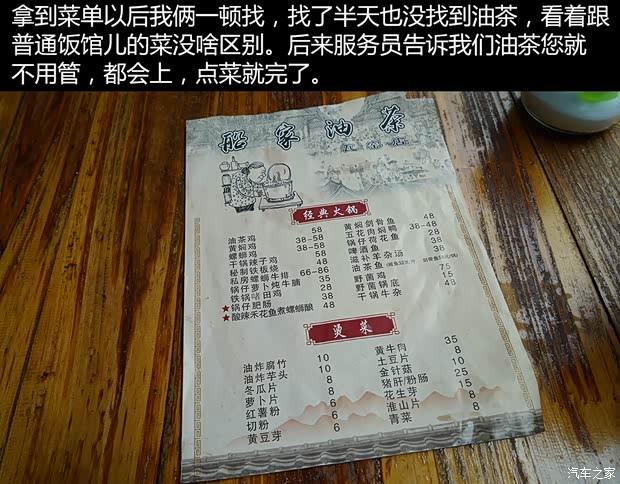 拿到菜单以后我俩一顿找，找了半天也没找到油茶，看着跟
普通饭馆儿的菜没啥区别。后来服务员告诉我们油茶您就
不用管，都会上，点菜就完了。
船家油茶
经典火锅
油茶鸡 58
黄焖鸡 38-58
螺蛳鸡 38-58
干锅辣子鸡 58
秘制铁板烧 48
私房螺蛳牛排 66-86
锅仔萝卜炖牛腩 35
铁锅啫田鸡 28
★锅仔肥肠 38
★酸辣禾花鱼煮螺蛳酿 48
黄焖剑骨鱼 48
五花肉焖鸭 38-48
锅仔荷花鱼 28
啤酒鱼 38
滋补羊杂汤 38
油茶鱼
野菌鸡 75
野菌锅底 15
干锅牛杂 48
烫菜
油炸腐竹 10
油炸芋头 10
冬瓜片 6
萝卜片 6
红薯粉 8
切粉 6
黄豆芽 6
黄牛肉 35
土豆片 8
金针菇 10
猪肝/粉肠 25
花生芽 15
淮山片 8
青菜 8
汽车之家